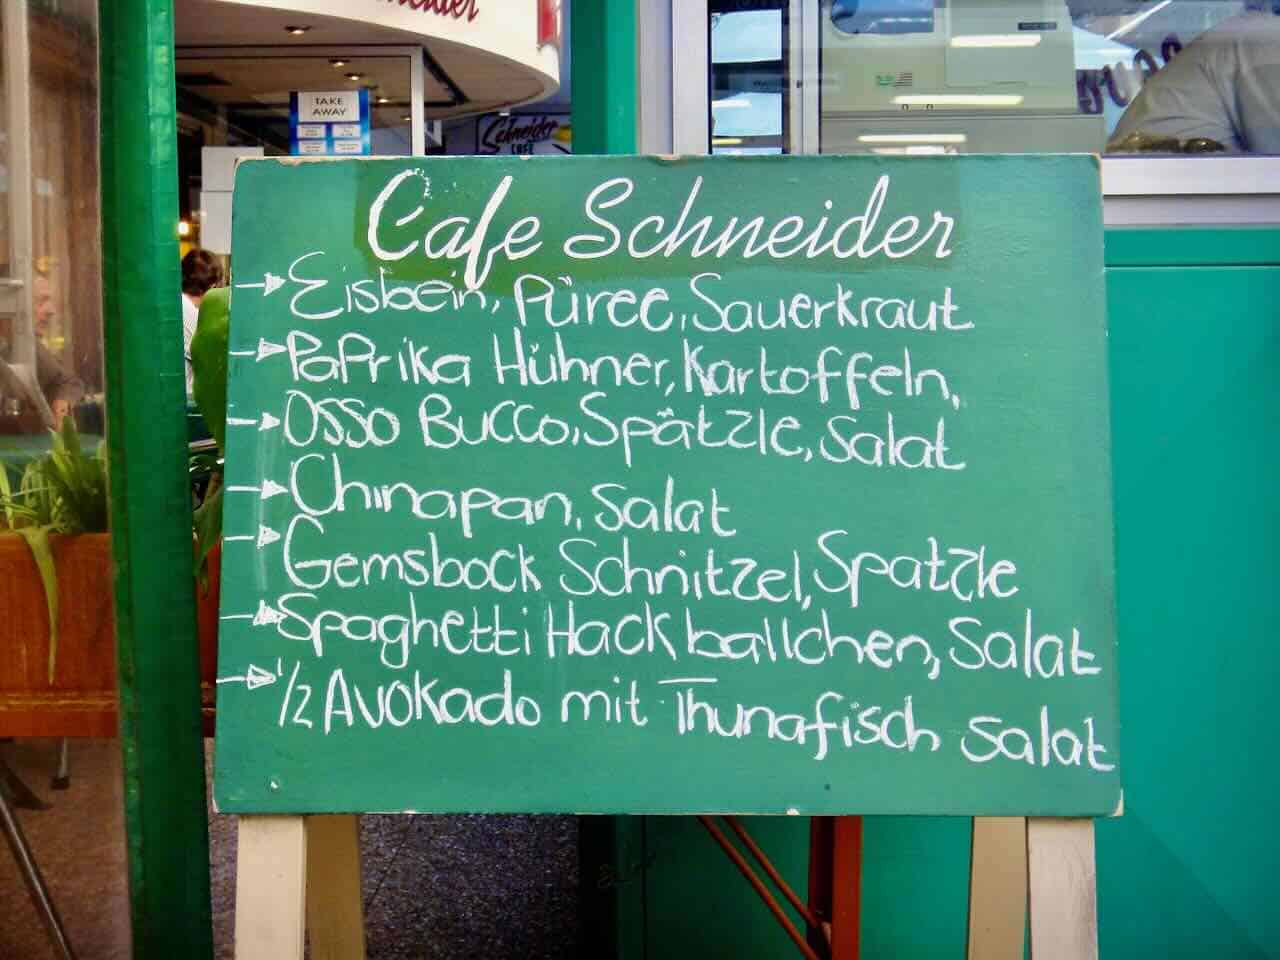 TAKE
AWAY
Schneider
CAFE
Cafe Schneider
Eisbein, Püree, Sauerkraut
Paprika Hühner, Kartoffeln,
Osso Bucco, Spätzle, Salat
Chinapan, Salat
Gemsbock Schnitzel, Spatzle
Spaghetti Hackballchen, Salat
1/2 Avokado mit Thunafisch Salat